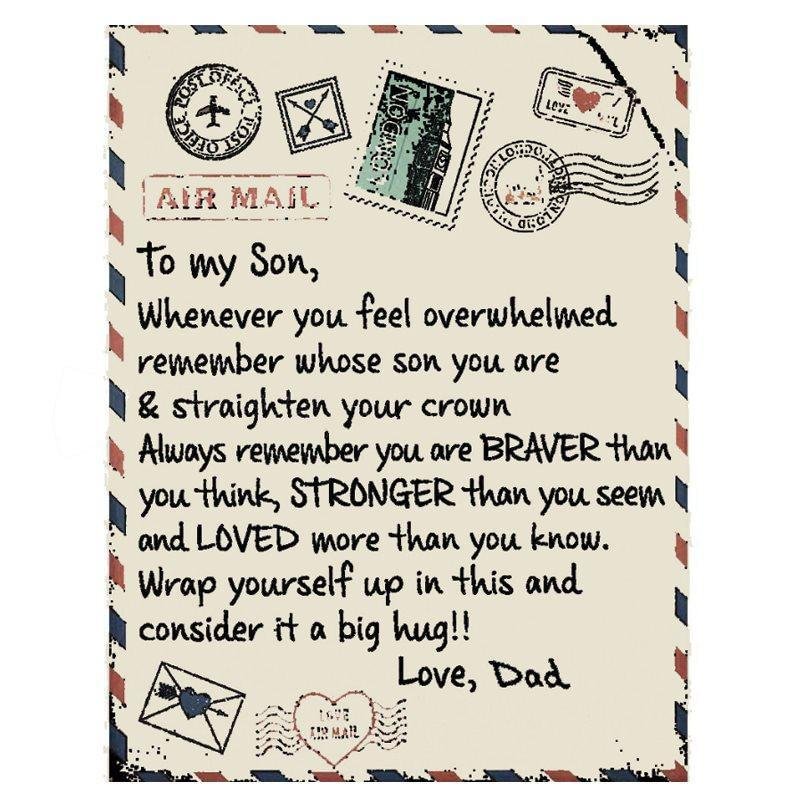 POST OFFICE POST OFFICE
LONDON
LOVE MAIL
LONDON
AIR MAIL
To my Son,
Whenever you feel overwhelmed
remember whose son you are
& straighten your crown
Always remember you are BRAVER than
you think, STRONGER than you seem
and LOVED more than you know.
Wrap yourself up in this and
consider it a big hug!!
Love, Dad
LOVE
AIR MAIL